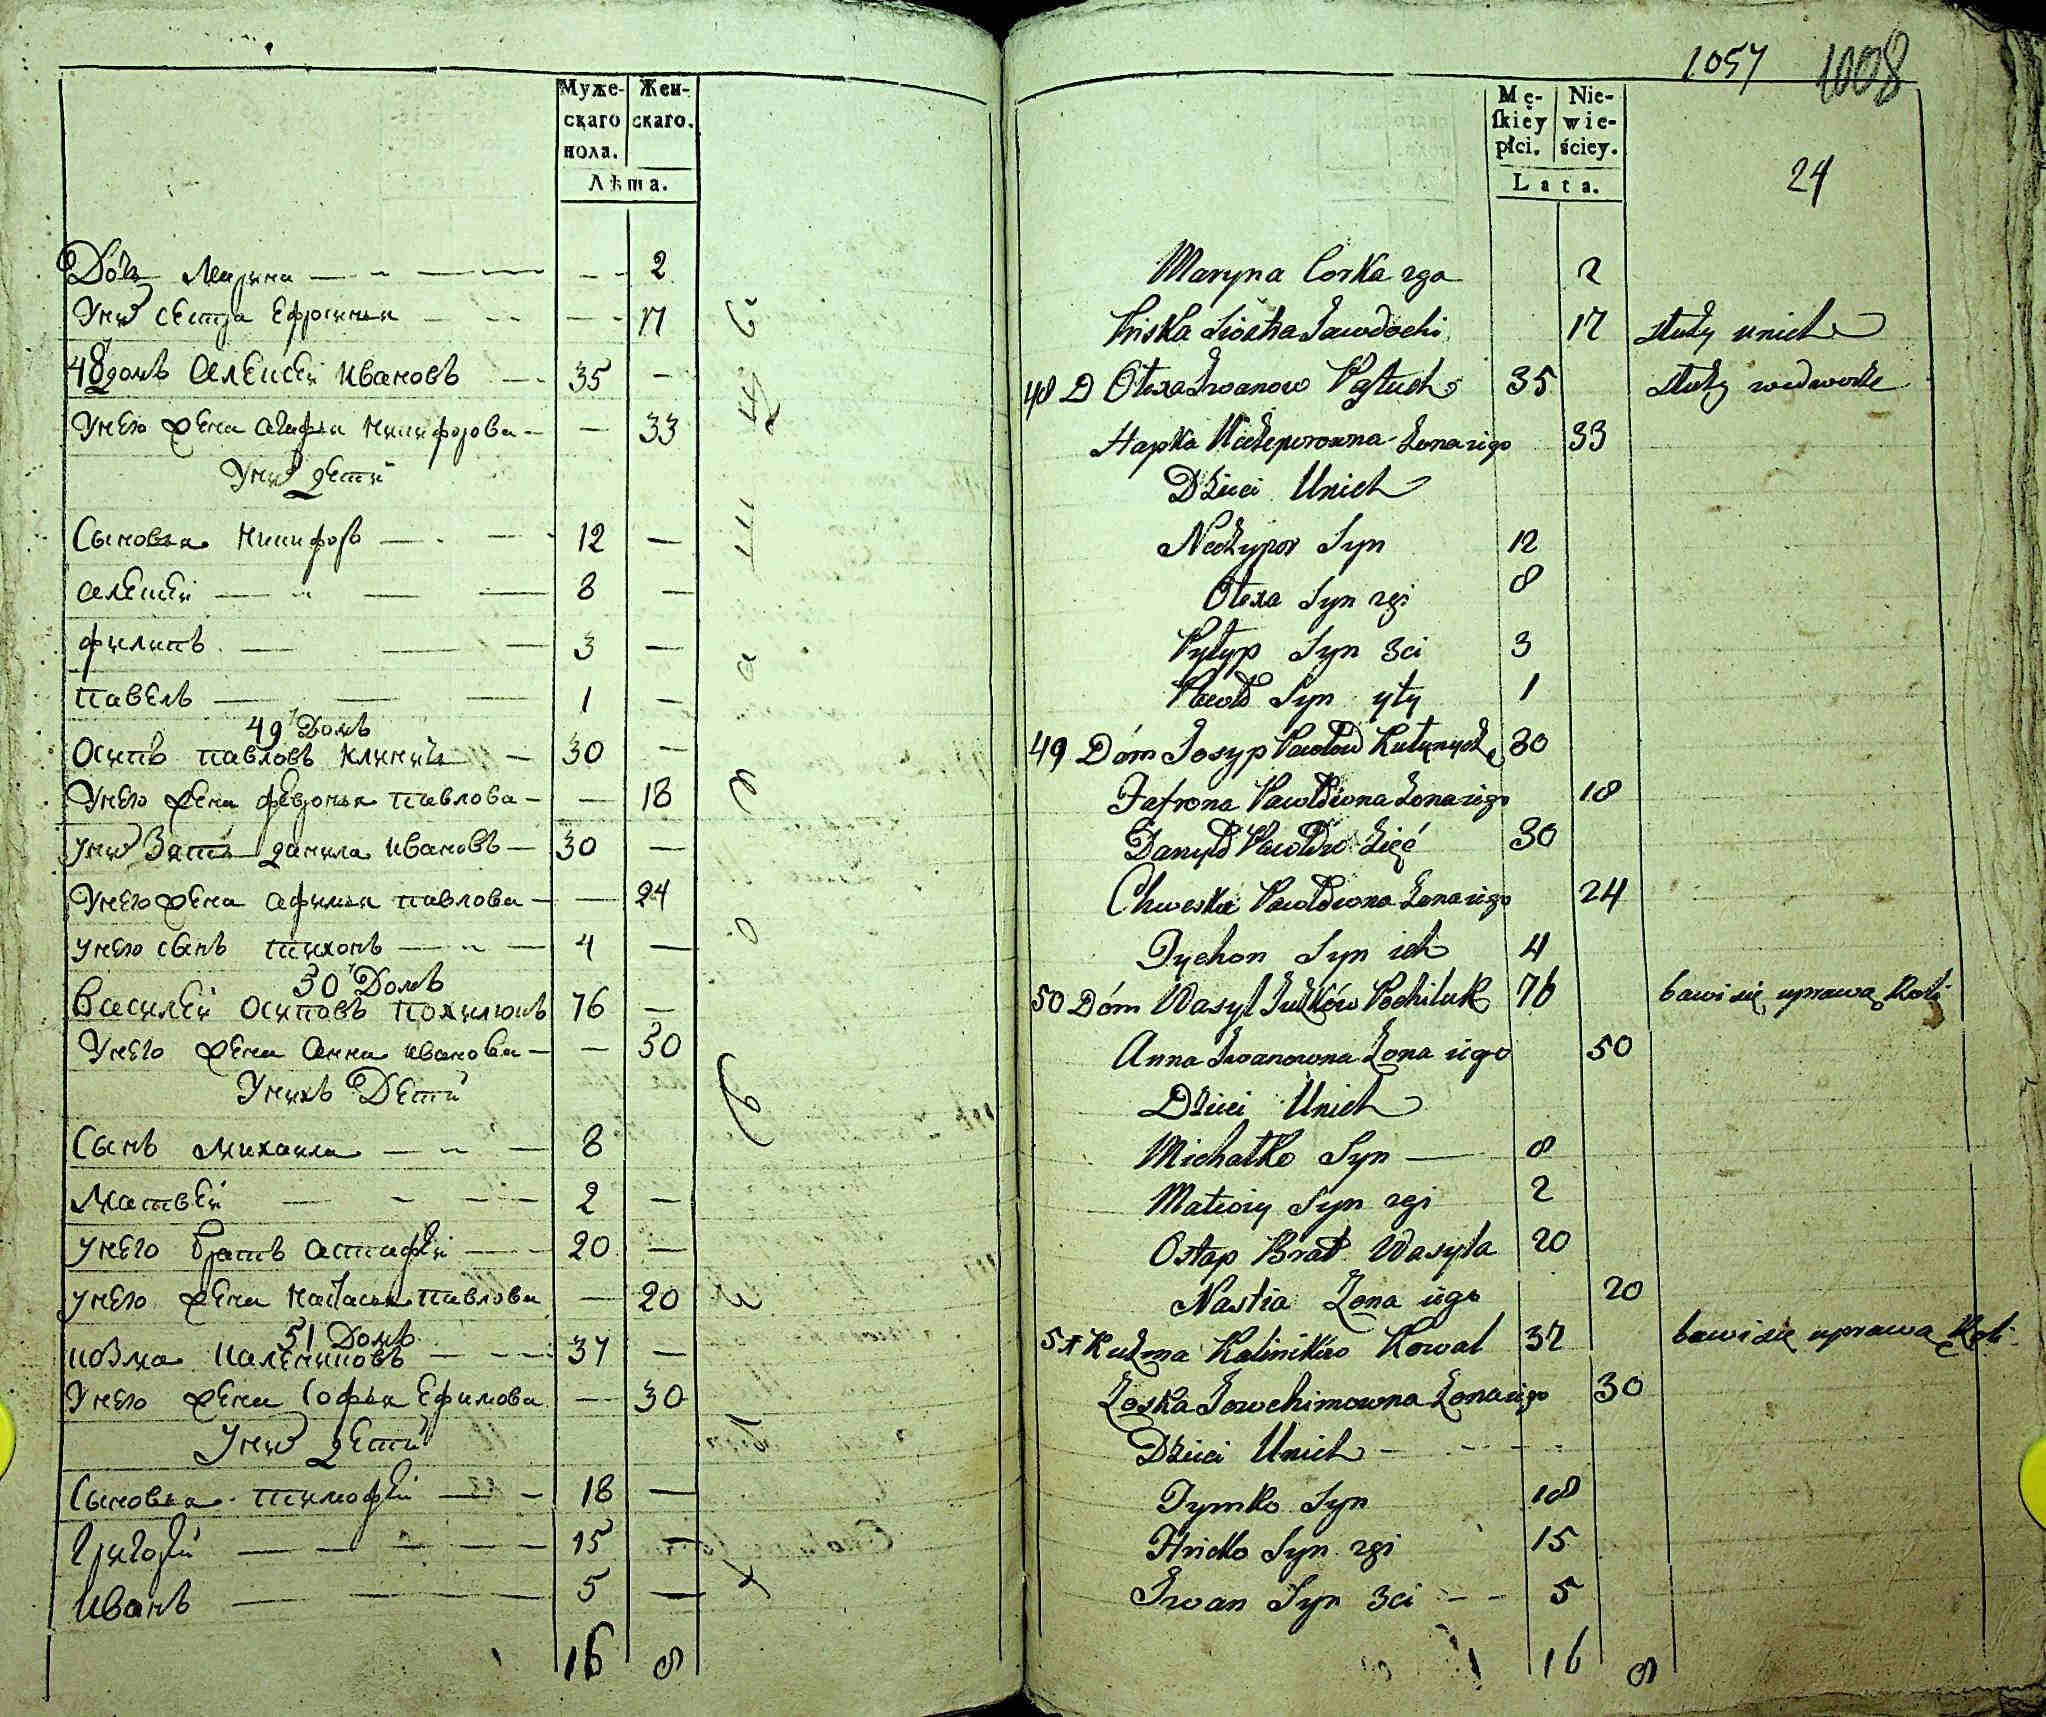 Муже-
скаго
пола.
Жен-
скаго.
Лѣта.
Дочь Марина 2
У них сестра Ефросинья 17
48 домъ Алексей Ивановъ 35
У него жена Агафья Никифорова 33
У них дети
Сыновья Никифоръ 12
Алексей 8
Филипъ 3
Павелъ 1
49 Домъ
Осипъ Павловъ 30
У него жена Февронья Павлова 18
У них Зять Данила Ивановъ 30
У него жена Афимья Павлова 24
У него сынъ Тихонъ 4
50 Домъ
Василей Осиповъ Похилюкъ 76
У него жена Анна Иванова 50
У нихъ Дети
Сынъ Михаила 8
Матвей 2
У него братъ Астафей 20
У него жена Настасья Павлова 20
51 Домъ
Козма Калениковъ 37
У него жена Софья Ефимова 30
У них дети
Сыновья Тимофей 18
Григорей 15
Иванъ 5
16 8
1057 1008
Mę-
skiey
płci.
Nie-
wie-
ściey.
Lata.
24
Maryna Corka 2
Siostra 17 służy unich
48 D Olexa Iwanow Pastuch 35 służy wedworze
Hapka Neczeporowna Zona iego 33
Dzieci Unich
Neczypor Syn 12
Olexa Syn 2gi 8
Pyłyp Syn 3ci 3
Pawło Syn 4ty 1
49 Dóm Josyp Pawłów 30
Fafrona Pawłowna Zona iego 18
Danyło Pawłów Zięć 30
Chweska Pawłowna Zona iego 24
Tychon Syn ich 4
50 Dóm Wasyl Juzków Pochiluk 76 bawi się uprawą Roli
Anna Iwanowna Zona iego 50
Dzieci Unich
Michałko Syn 8
Matwiy Syn 2gi 2
Ostap Brat Wasyla 20
Nastia Zona iego 20
51 Kuzma Kalinikow Kowal 37 bawi się uprawą Roli
Zoska Jowchimowna Zona iego 30
Dzieci Unich
Tymko Syn 18
Hricko Syn 2gi 15
Iwan Syn 3ci 5
16 8